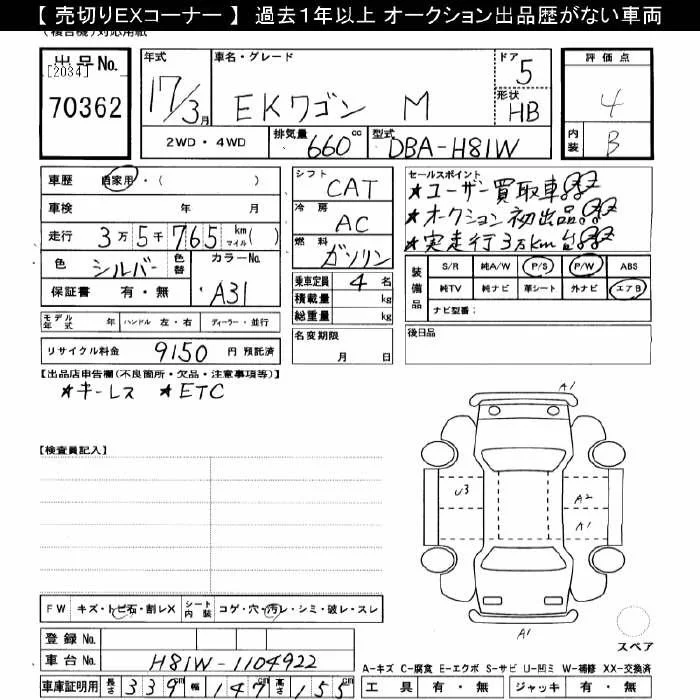 【 売切りEXコーナー 】 過去1年以上 オークション出品歴がない車両
(複合機)対応用紙
出品No. [2034] 70362
年式 17/3月
車名・グレード EKワゴン M
ドア 5
形状 HB
2WD・4WD 排気量 660cc 型式 DBA-H81W
評価点 4
内装 B
車歴 自家用・( )
車検 年 月
走行 3万5千765 km マイル( )
色 シルバー 色替 カラーNo. A31
保証書 有・無
モデル年式 年 ハンドル 左・右 ディーラー・並行
リサイクル料金 9150 円 預託済
シフト CAT
冷房 AC
燃料 ガソリン
乗車定員 4 名
積載量 kg
総重量 kg
名変期限 月 日
セールスポイント
★ユーザー買取車!!
★オークション初出品!!
★実走行3万km台!!
装備品 S/R 純A/W P/S P/W ABS
純TV 純ナビ 革シート 外ナビ エアB
ナビ型番:
後日品
【出品店申告欄(不良箇所・欠品・注意事項等)】
★キーレス ★ETC
【検査員記入】
A1
U3 A2
A1
A1
スペア
FW キズ・トビ石・割レX シート内装 コゲ・穴・汚レ・シミ・破レ・スレ
登録No.
車台No. H81W-1104922
車庫証明用 長さ 339cm 幅 147cm 高さ 155cm
A-キズ C-腐食 E-エクボ S-サビ U-凹ミ W-補修 XX-交換済
工具 有・無 ジャッキ 有・無